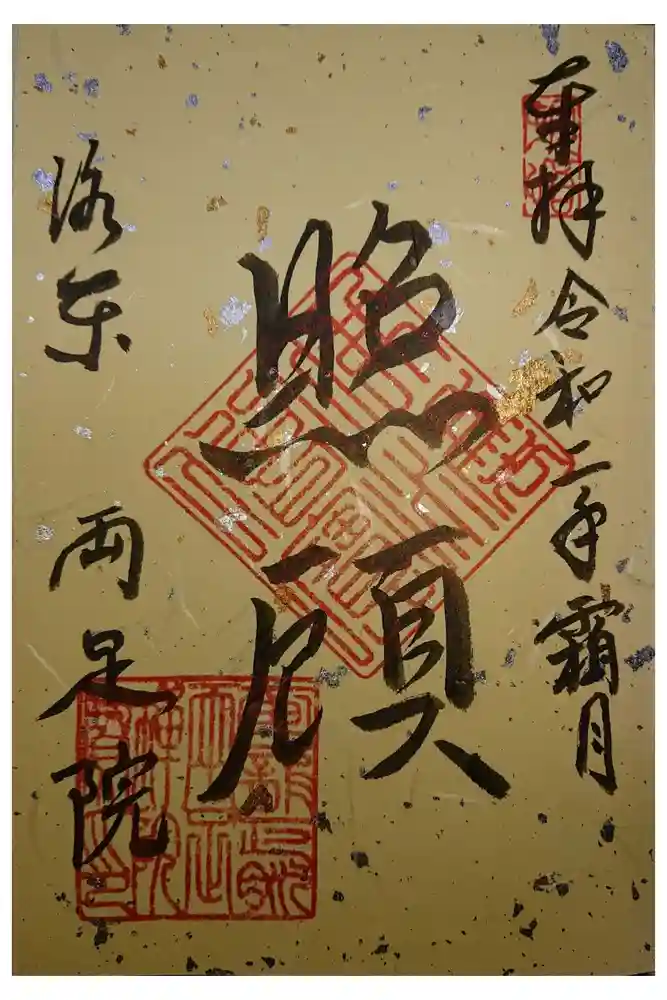 奉拝 令和二年 霜月
照顧
洛東 両足院